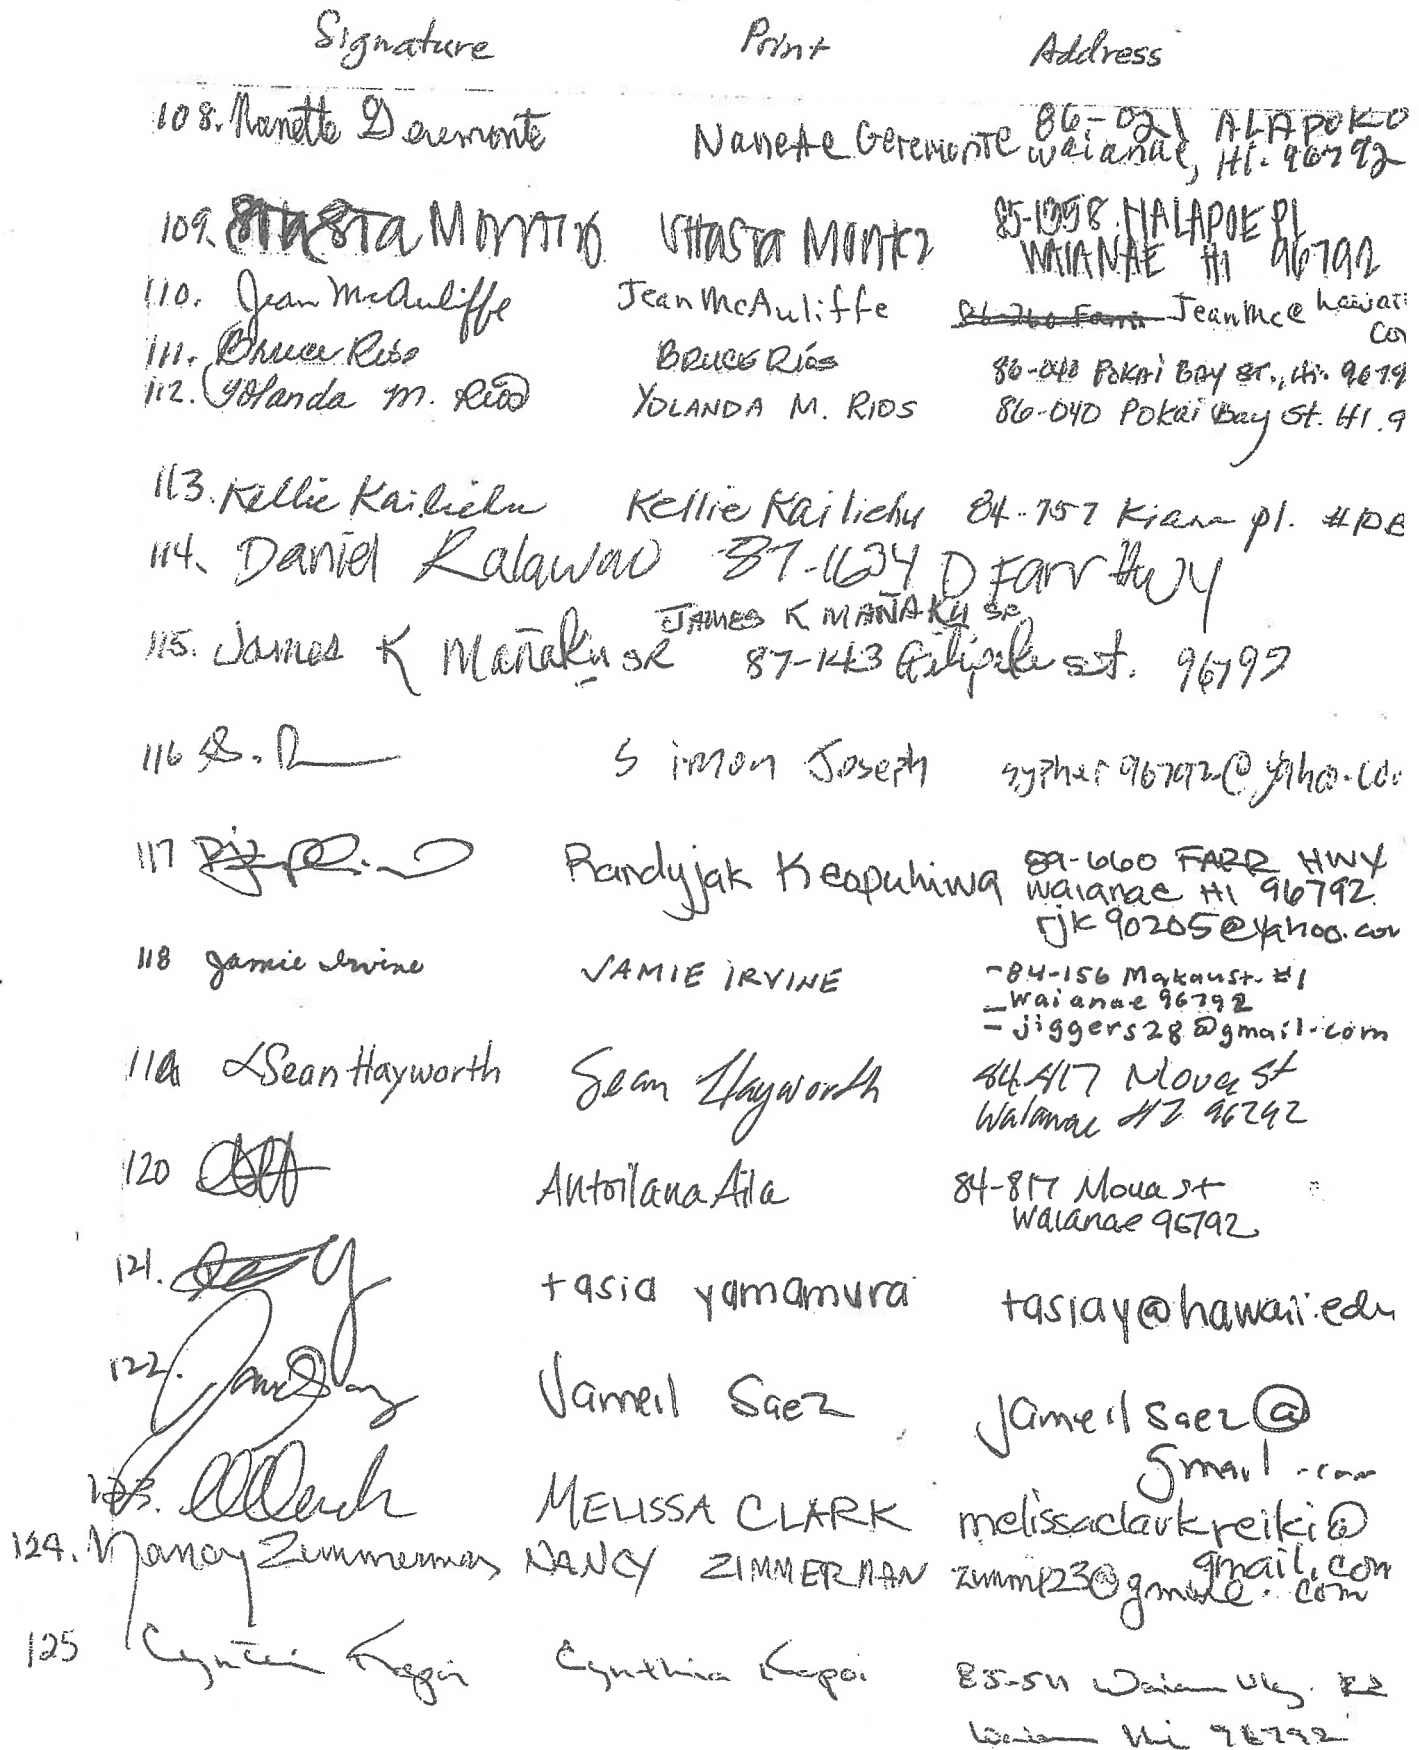 Signature Print Address
108. Nanette Geremonte Nanette Geremonte 86-021 ALAPOKO
Waianae, HI. 96792
109. Montez Montez 85-1358 NALAPOE PL
WAIANAE HI 96792
110. Jean McAuliffe Jean McAuliffe Jeanmc@hawaii
111. Bruce Rios BRUCE Ríos 86-040 POKAI BAY ST., HI. 9679
112. Yolanda M. Rios YOLANDA M. RIOS 86-040 Pokai Bay St. HI. 9
113. Kellie Kailiehu Kellie Kailiehu 84-757 Kiana pl. #
114. Daniel Kalawao 87-1634 D Farr Hwy
JAMES K MAÑAKU SR
115. James K Mañaku SR 87-143 st. 96792
116 S. Simon Joseph sypher96792@yahoo.co
117 Randyjak Keopuhiwa 89-660 FARR HWY
Waianae HI 96792
rjk90205@yahoo.com
118 Jamie Irvine JAMIE IRVINE -84-156 Makau st. #1
-Waianae 96792
-jiggers28@gmail.com
119 Sean Hayworth Sean Hayworth 84-817 Moua St
Waianae HI 96792
120 Antoilana Aila 84-817 Moua st
Waianae 96792
121. tasia yamamura tasiay@hawaii.edu
122. Jameil Saez jameilsaez@
gmail.com
123. MELISSA CLARK melissaclarkreiki@
gmail.com
124. Nancy Zimmerman NANCY ZIMMERMAN
125 Cynthia Kapoi Cynthia Kapoi 85-
96792